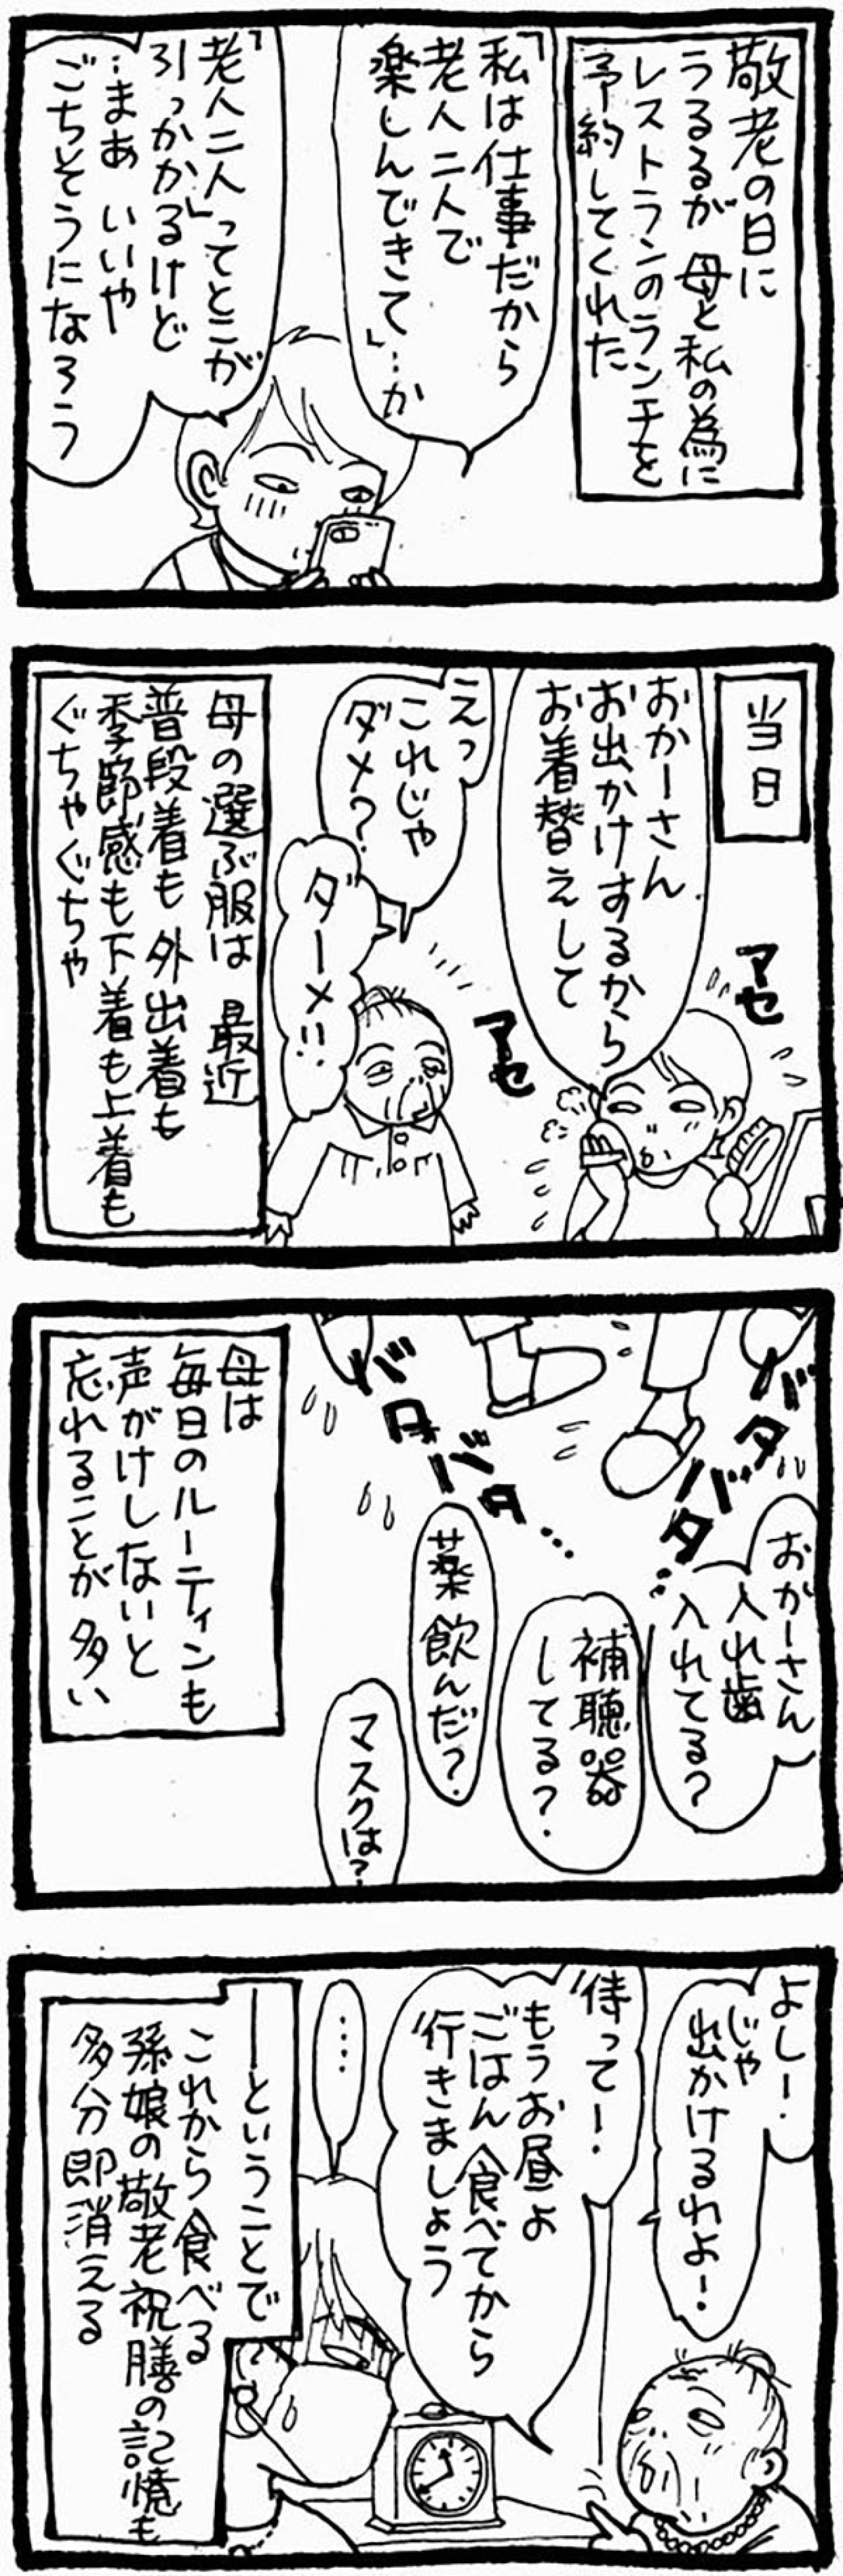 敬老の日に
うるるが 母と私の為に
レストランのランチを
予約してくれた
「私は仕事だから
老人二人で
楽しんできて」…か
「老人二人」ってとこが
引っかかるけど
…まあ いいや
ごちそうになろう
当日
おかーさん
お出かけするから
お着替えして
アセ
アセ
えっ
これじゃ
ダメ?
ダーメ!!
母の選ぶ服は 最近
普段着も 外出着も
季節感も下着も上着も
ぐちゃぐちゃ
バタバタ…
バタバタ…
おかーさん
入れ歯
入れてる?
補聴器
してる?
薬飲んだ?
マスクは?
母は
毎日のルーティンも
声がけしないと
忘れることが多い
よしー!
じゃ
出かけるわよー!
待ってー!
もうお昼よ
ごはん食べてから
行きましょう
‥‥
―ということで
これから食べる
孫娘の敬老祝膳の記憶も
多分即消える